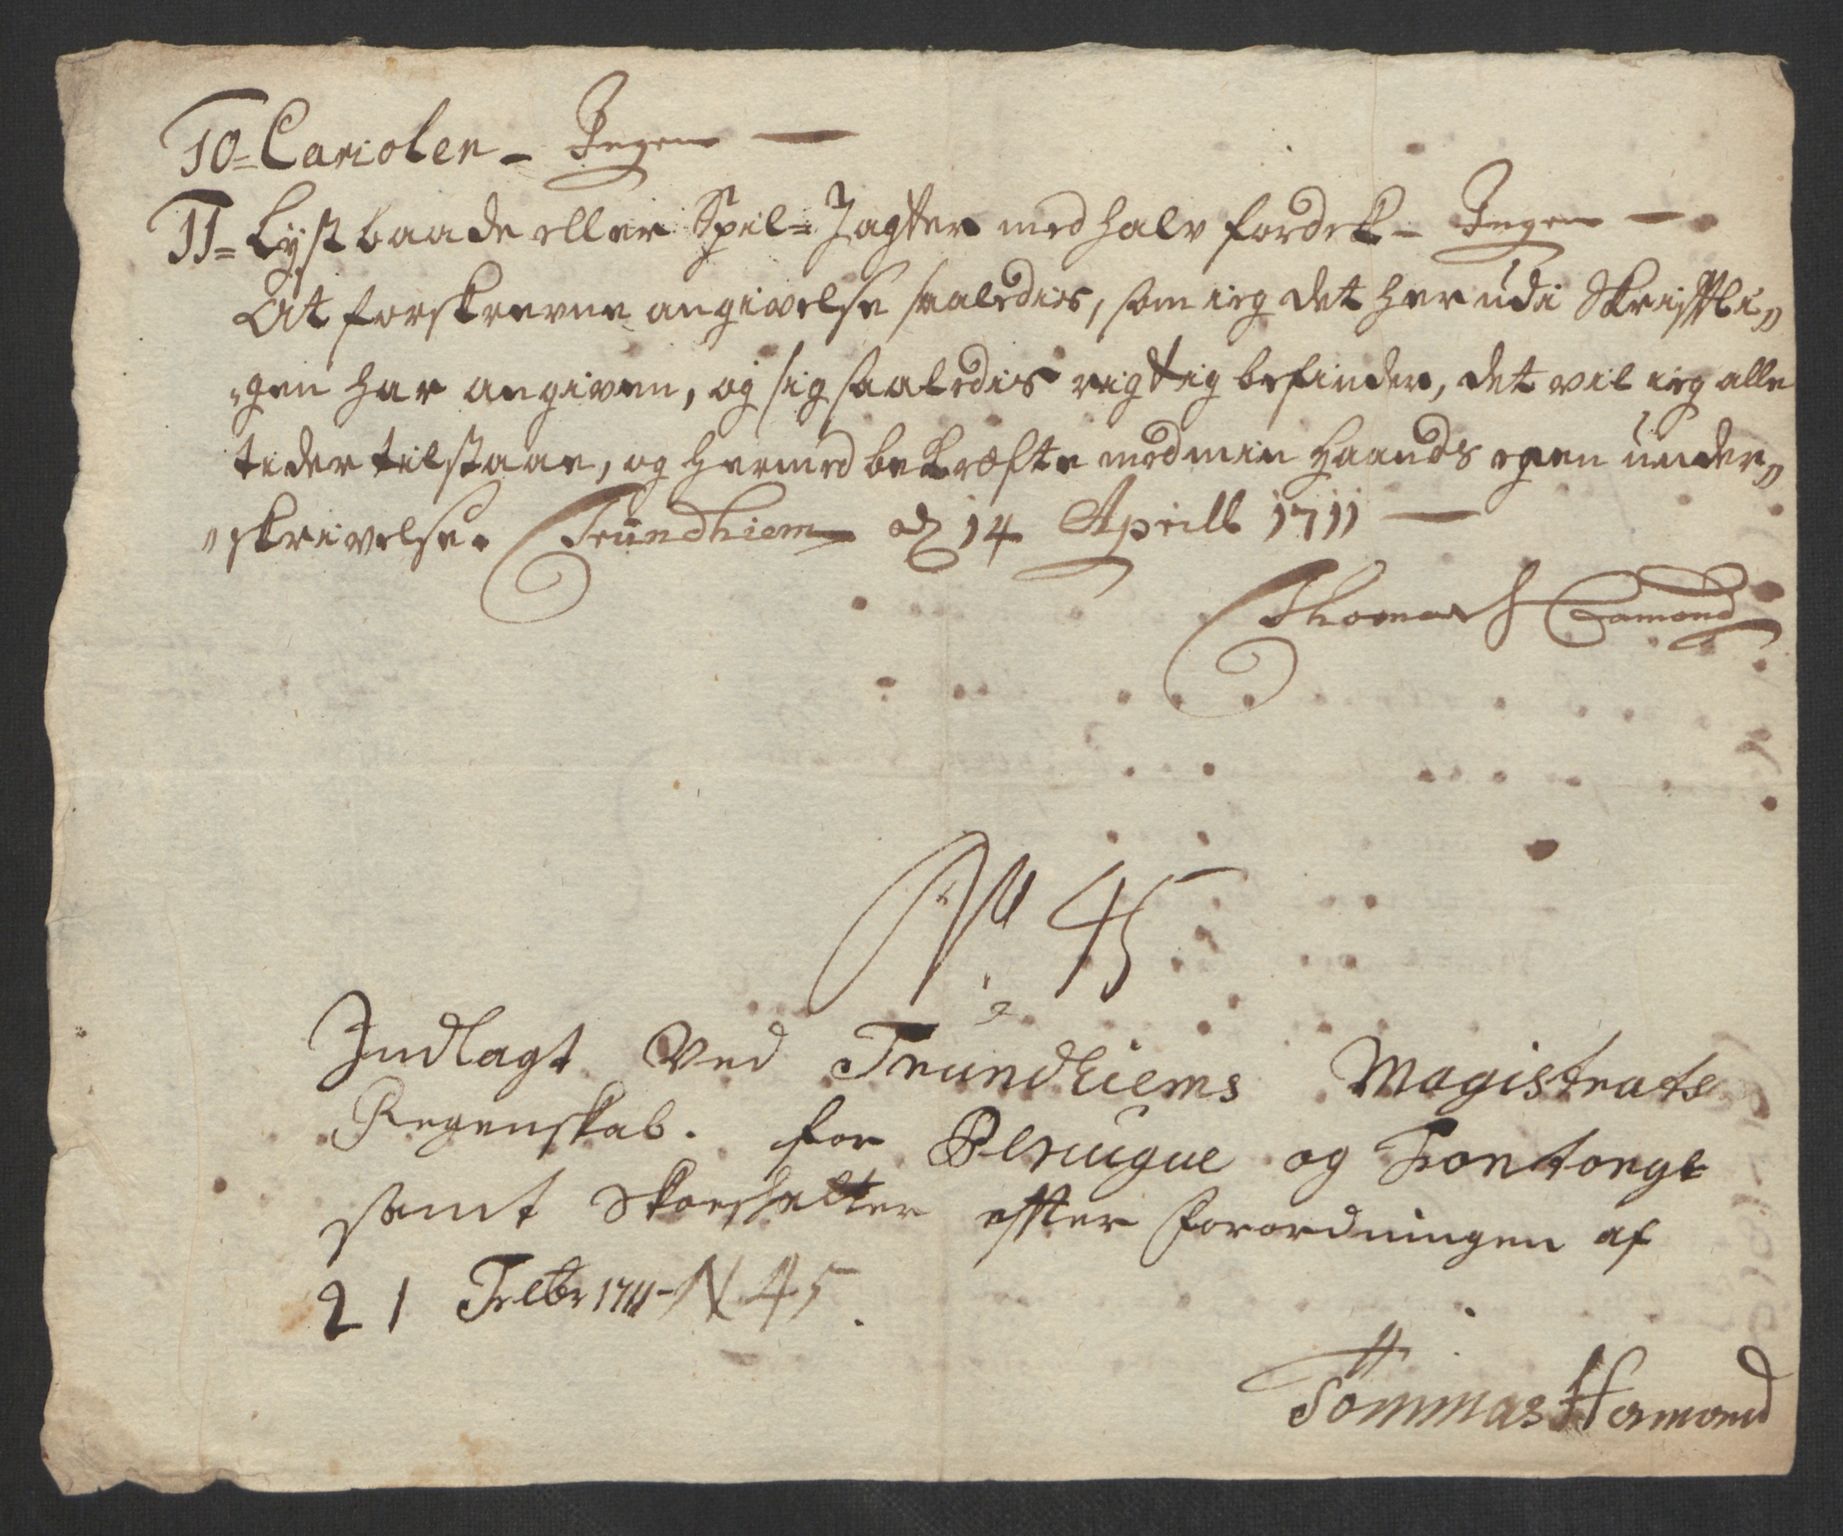 10= Carioler – Ingen —
11= Lystbaade eller Spil=Jagter med halv fordek – Ingen —
At forskrevne angivelse saaledis, som ieg det her udi Skriftli„
„gen har angiven, og sig saaledis rigtig befinder, det vil ieg alle
tider tilstaae, og hermed bekræfte med min Haands egen under„
„skrivelse. Trundhiem d 14 Aprill 1711 —
Thomas Hamond
No 45
Indlagt Ved Trundhiems Magistrats
Regenskab. for Peruque og Fontonge
samt Skoeshatter efter Forordningen af
21 Febr 1711 – N 45.
Tommas Hamond